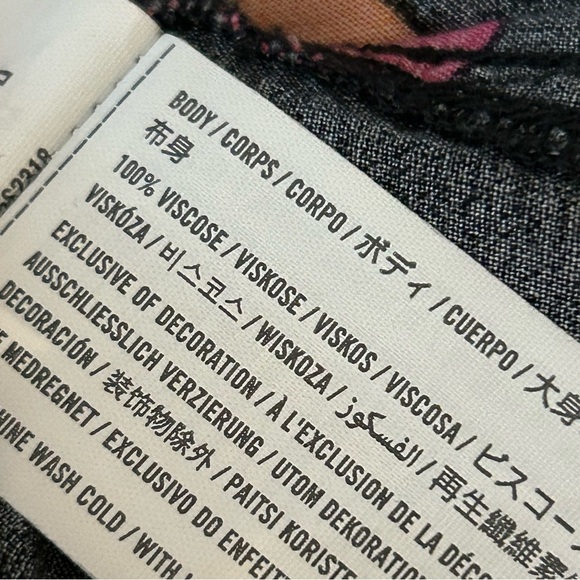 BODY / CORPS / CORPO / ボディ / CUERPO / 大身
布身
100% VISCOSE / VISKOSE / VISKOS / VISCOSA / ビスコー
VISKÓZA / 비스코스 / WISKOZA / الفسكوز / 再生纖維素
EXCLUSIVE OF DECORATION / À L'EXCLUSION DE LA DÉC
AUSSCHLIESSLICH VERZIERUNG / UTOM DEKORATION
DECORACIÓN / 装飾物除外 / PAITSI KORISTE
MEDREGNET / EXCLUSIVO DO ENFEIT
HINE WASH COLD / WITH